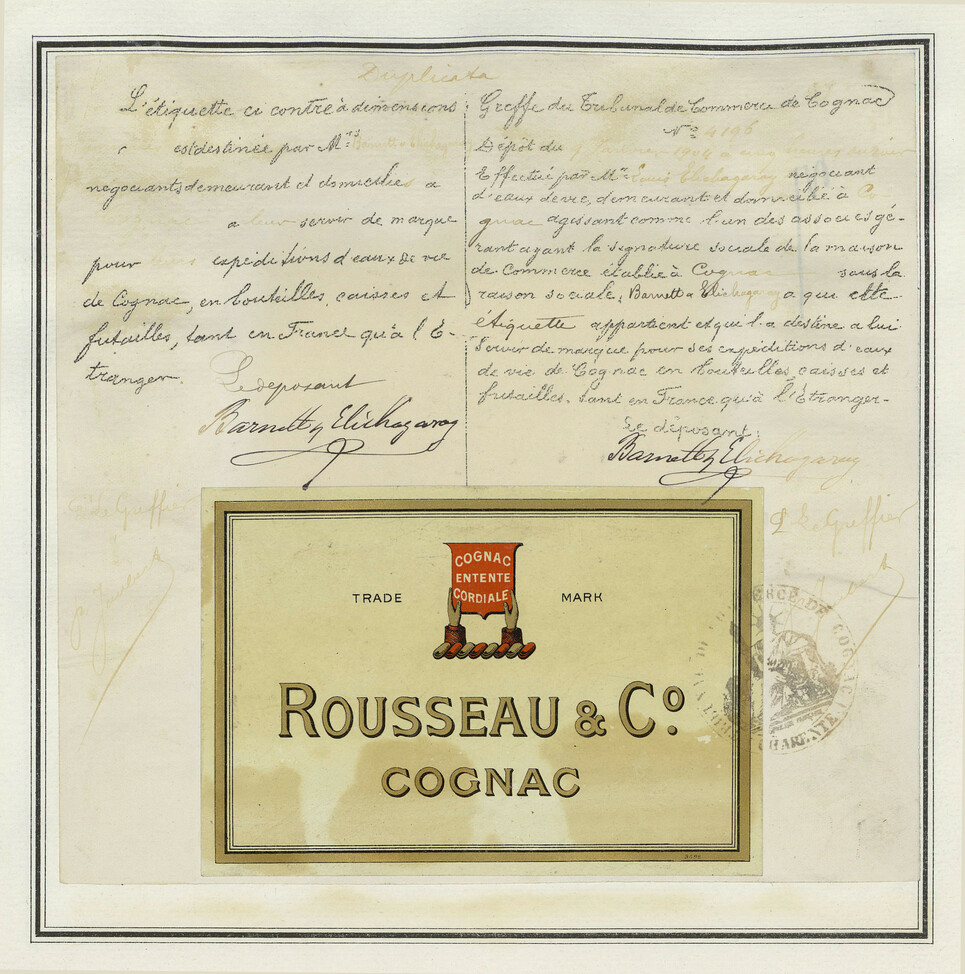 Duplicata
L'étiquette ci contre à dimensions
est destinée par M.rs Barnett & Elichagaray
negociants demeurant et domiciliés a
a leur servir de marque
pour leurs expéditions d'eaux de vie
de Cognac, en bouteilles, caisses et
futailles, tant en France qu'à l'É-
tranger.
Le deposant
Barnett & Elichagaray
Greffe du Tribunal de Commerce de Cognac
N.o 4196
Dépôt du
Effectué par M.r Louis Elichagaray negociant
d'eaux de vie, demeurant et domicilié à Co-
gnac agissant comme l'un des associés gé-
rant ayant la signature sociale de la maison
de Commerce établie à Cognac sous la
raison sociale, Barnett & Elichagaray a qui cette
étiquette appartient et qu'il a destine a lui
servir de marque pour ses expéditions d'eaux
de vie de Cognac en bouteilles, caisses et
futailles, tant en France qu'à l'Étranger-
Le déposant,
Barnett & Elichagaray
Le Greffier
P. Le Greffier
COGNAC
ENTENTE
CORDIALE
TRADE MARK
ROUSSEAU & Cº
COGNAC
COMMERCE DE COGNAC
CHARENTE